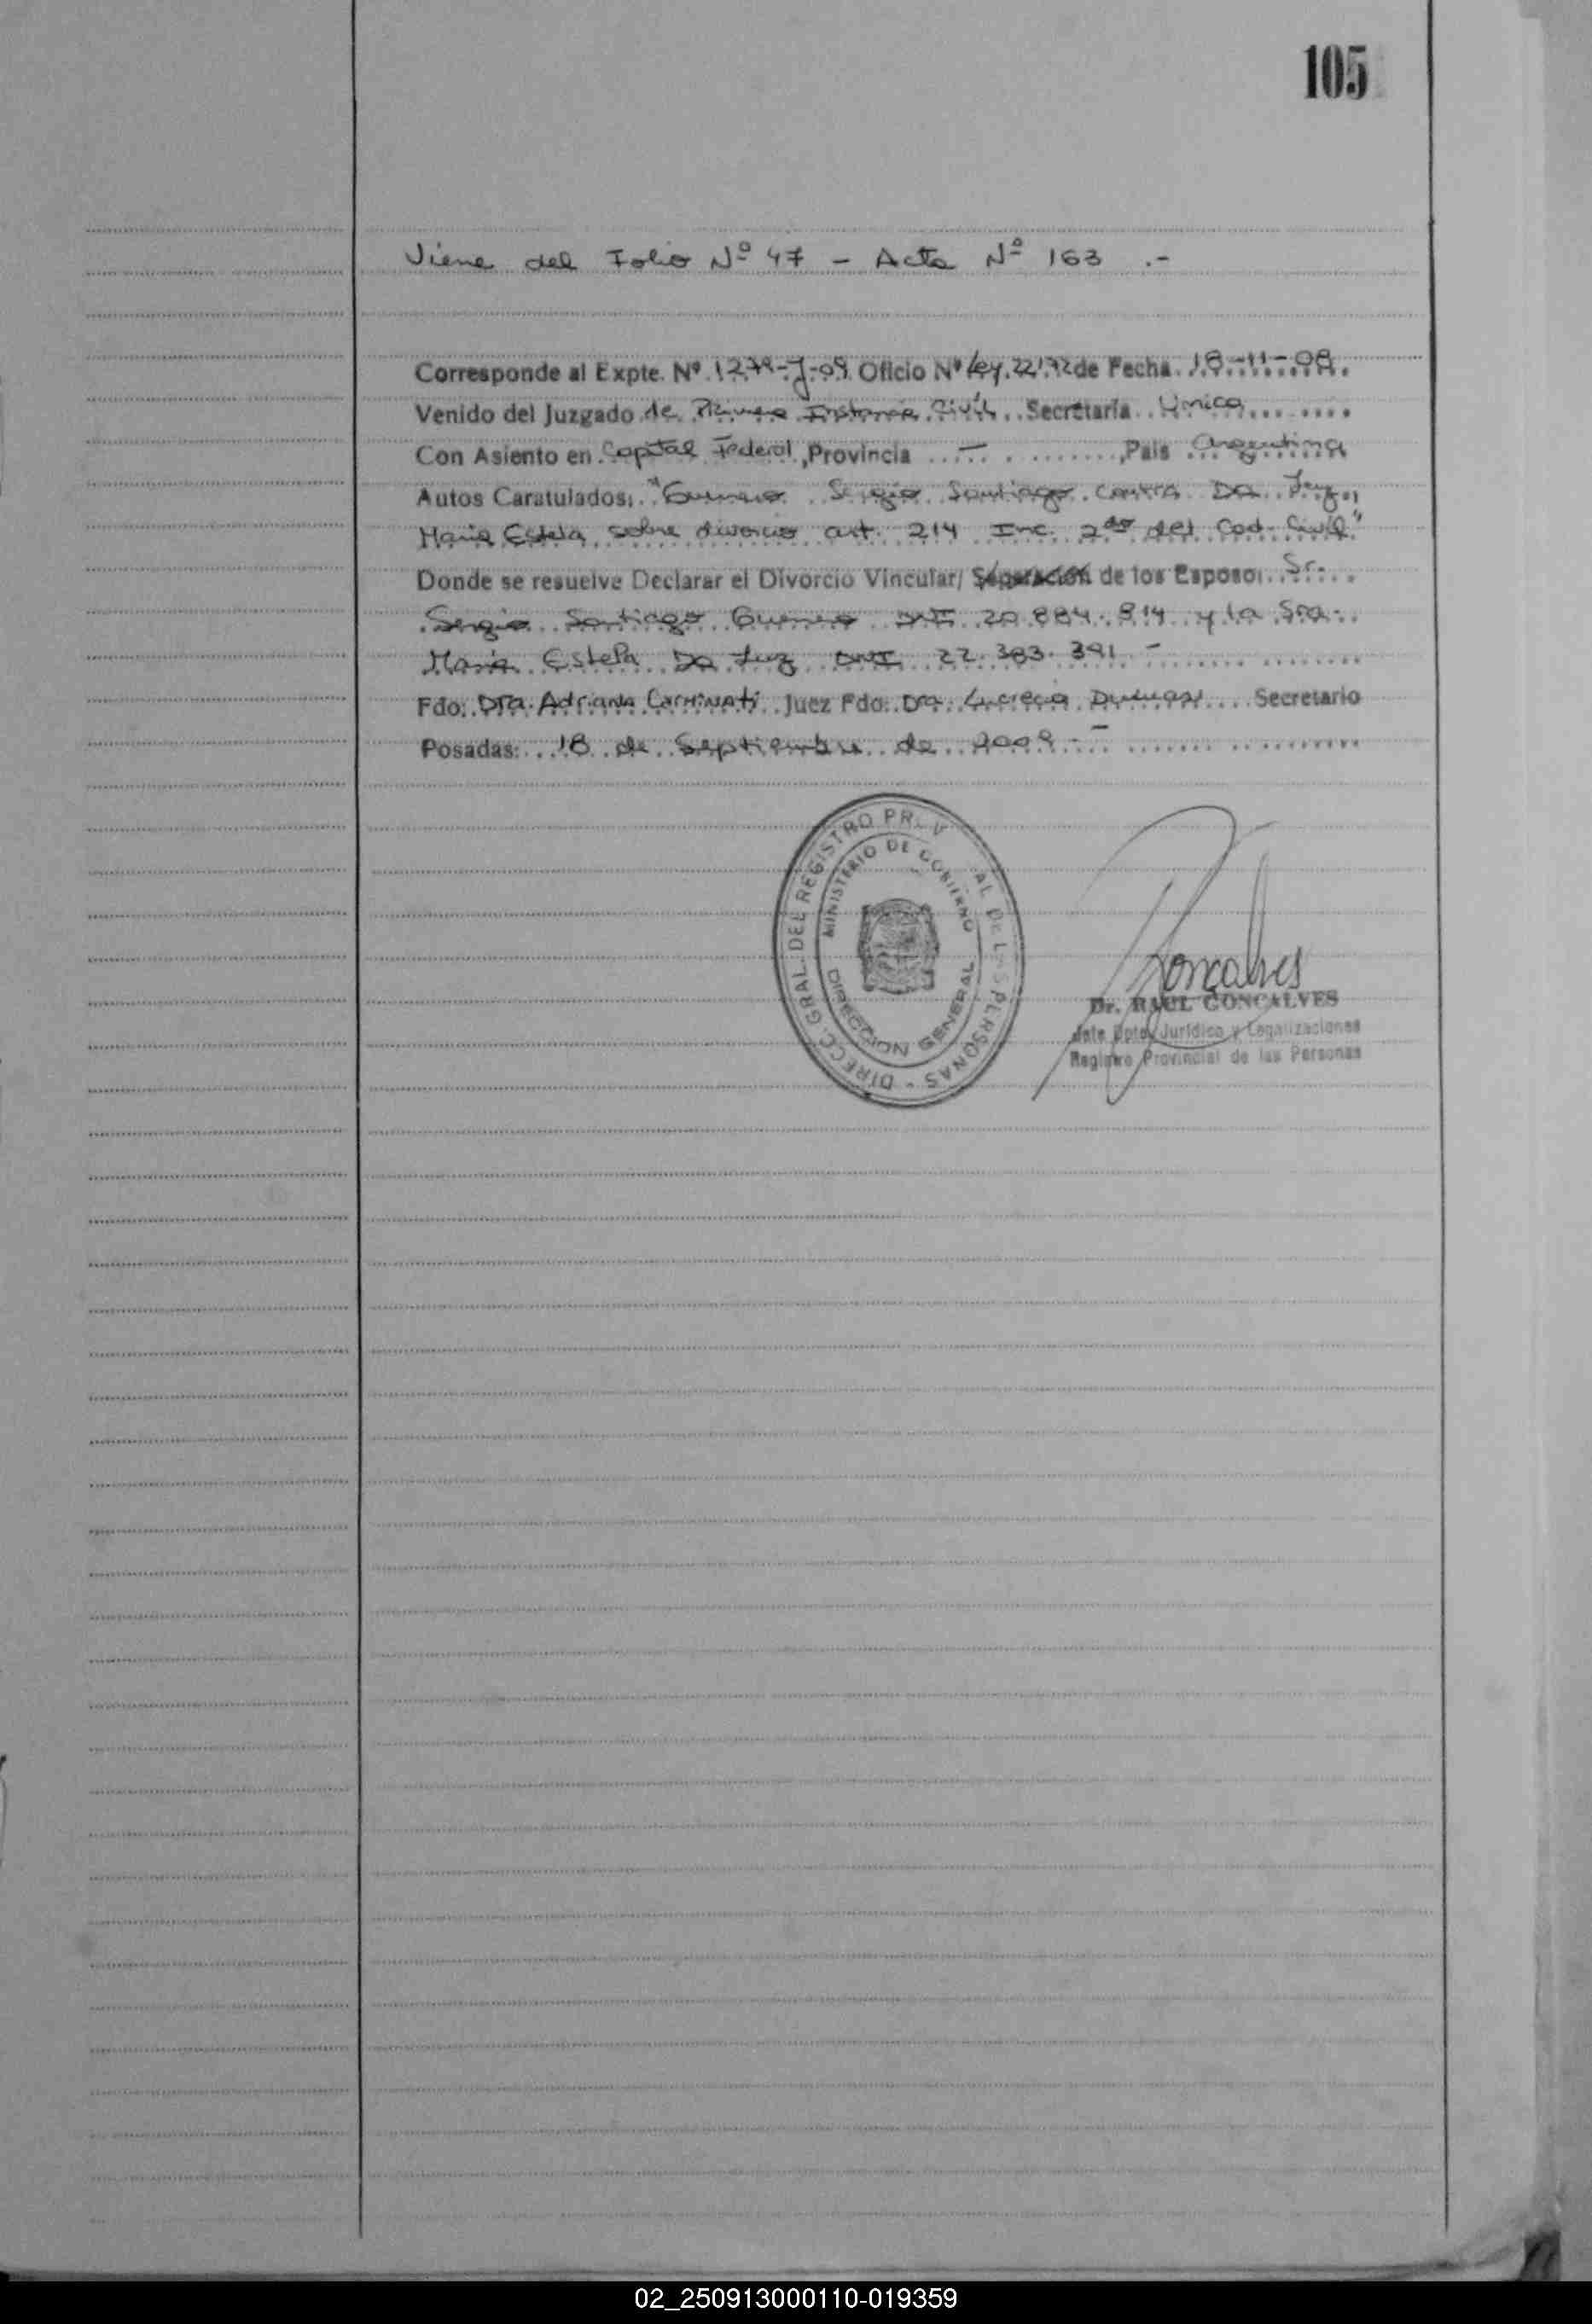 105
Viene del Folio Nº 47 - Acta Nº 163 .-
Corresponde al Expte. Nº 1279-J-09 Oficio Nº Ley 22172 de Fecha 18-11-08
Venido del Juzgado de Primera Instancia Civil Secretaría Unica
Con Asiento en Capital Federal, Provincia - , País Argentina
Autos Caratulados: "Guerrero Sergio Santiago contra Da Luz,
Maria Estela sobre divorcio art. 214 Inc. 2do del Cod. Civil"
Donde se resuelve Declarar el Divorcio Vincular/ Separación de los Esposos Sr.
Sergio Santiago Guerrero DNI 20.884.814 y la Sra.
Maria Estela Da Luz DNI 22.383.391 -
Fdo: Dra. Adriana Juez Fdo: Dra. Lucrecia Secretario
Posadas: 18 de Septiembre de 2009.-
DIRECC. GRAL. DEL REGISTRO PROV AL DE LAS PERSONAS
MINISTERIO DE GOBIERNO
DIRECCION GENERAL
Goncalves
Dr. RAUL GONCALVES
Jefe Dpto. Jurídico y Legalizaciones
Registro Provincial de las Personas
02_250913000110-019359